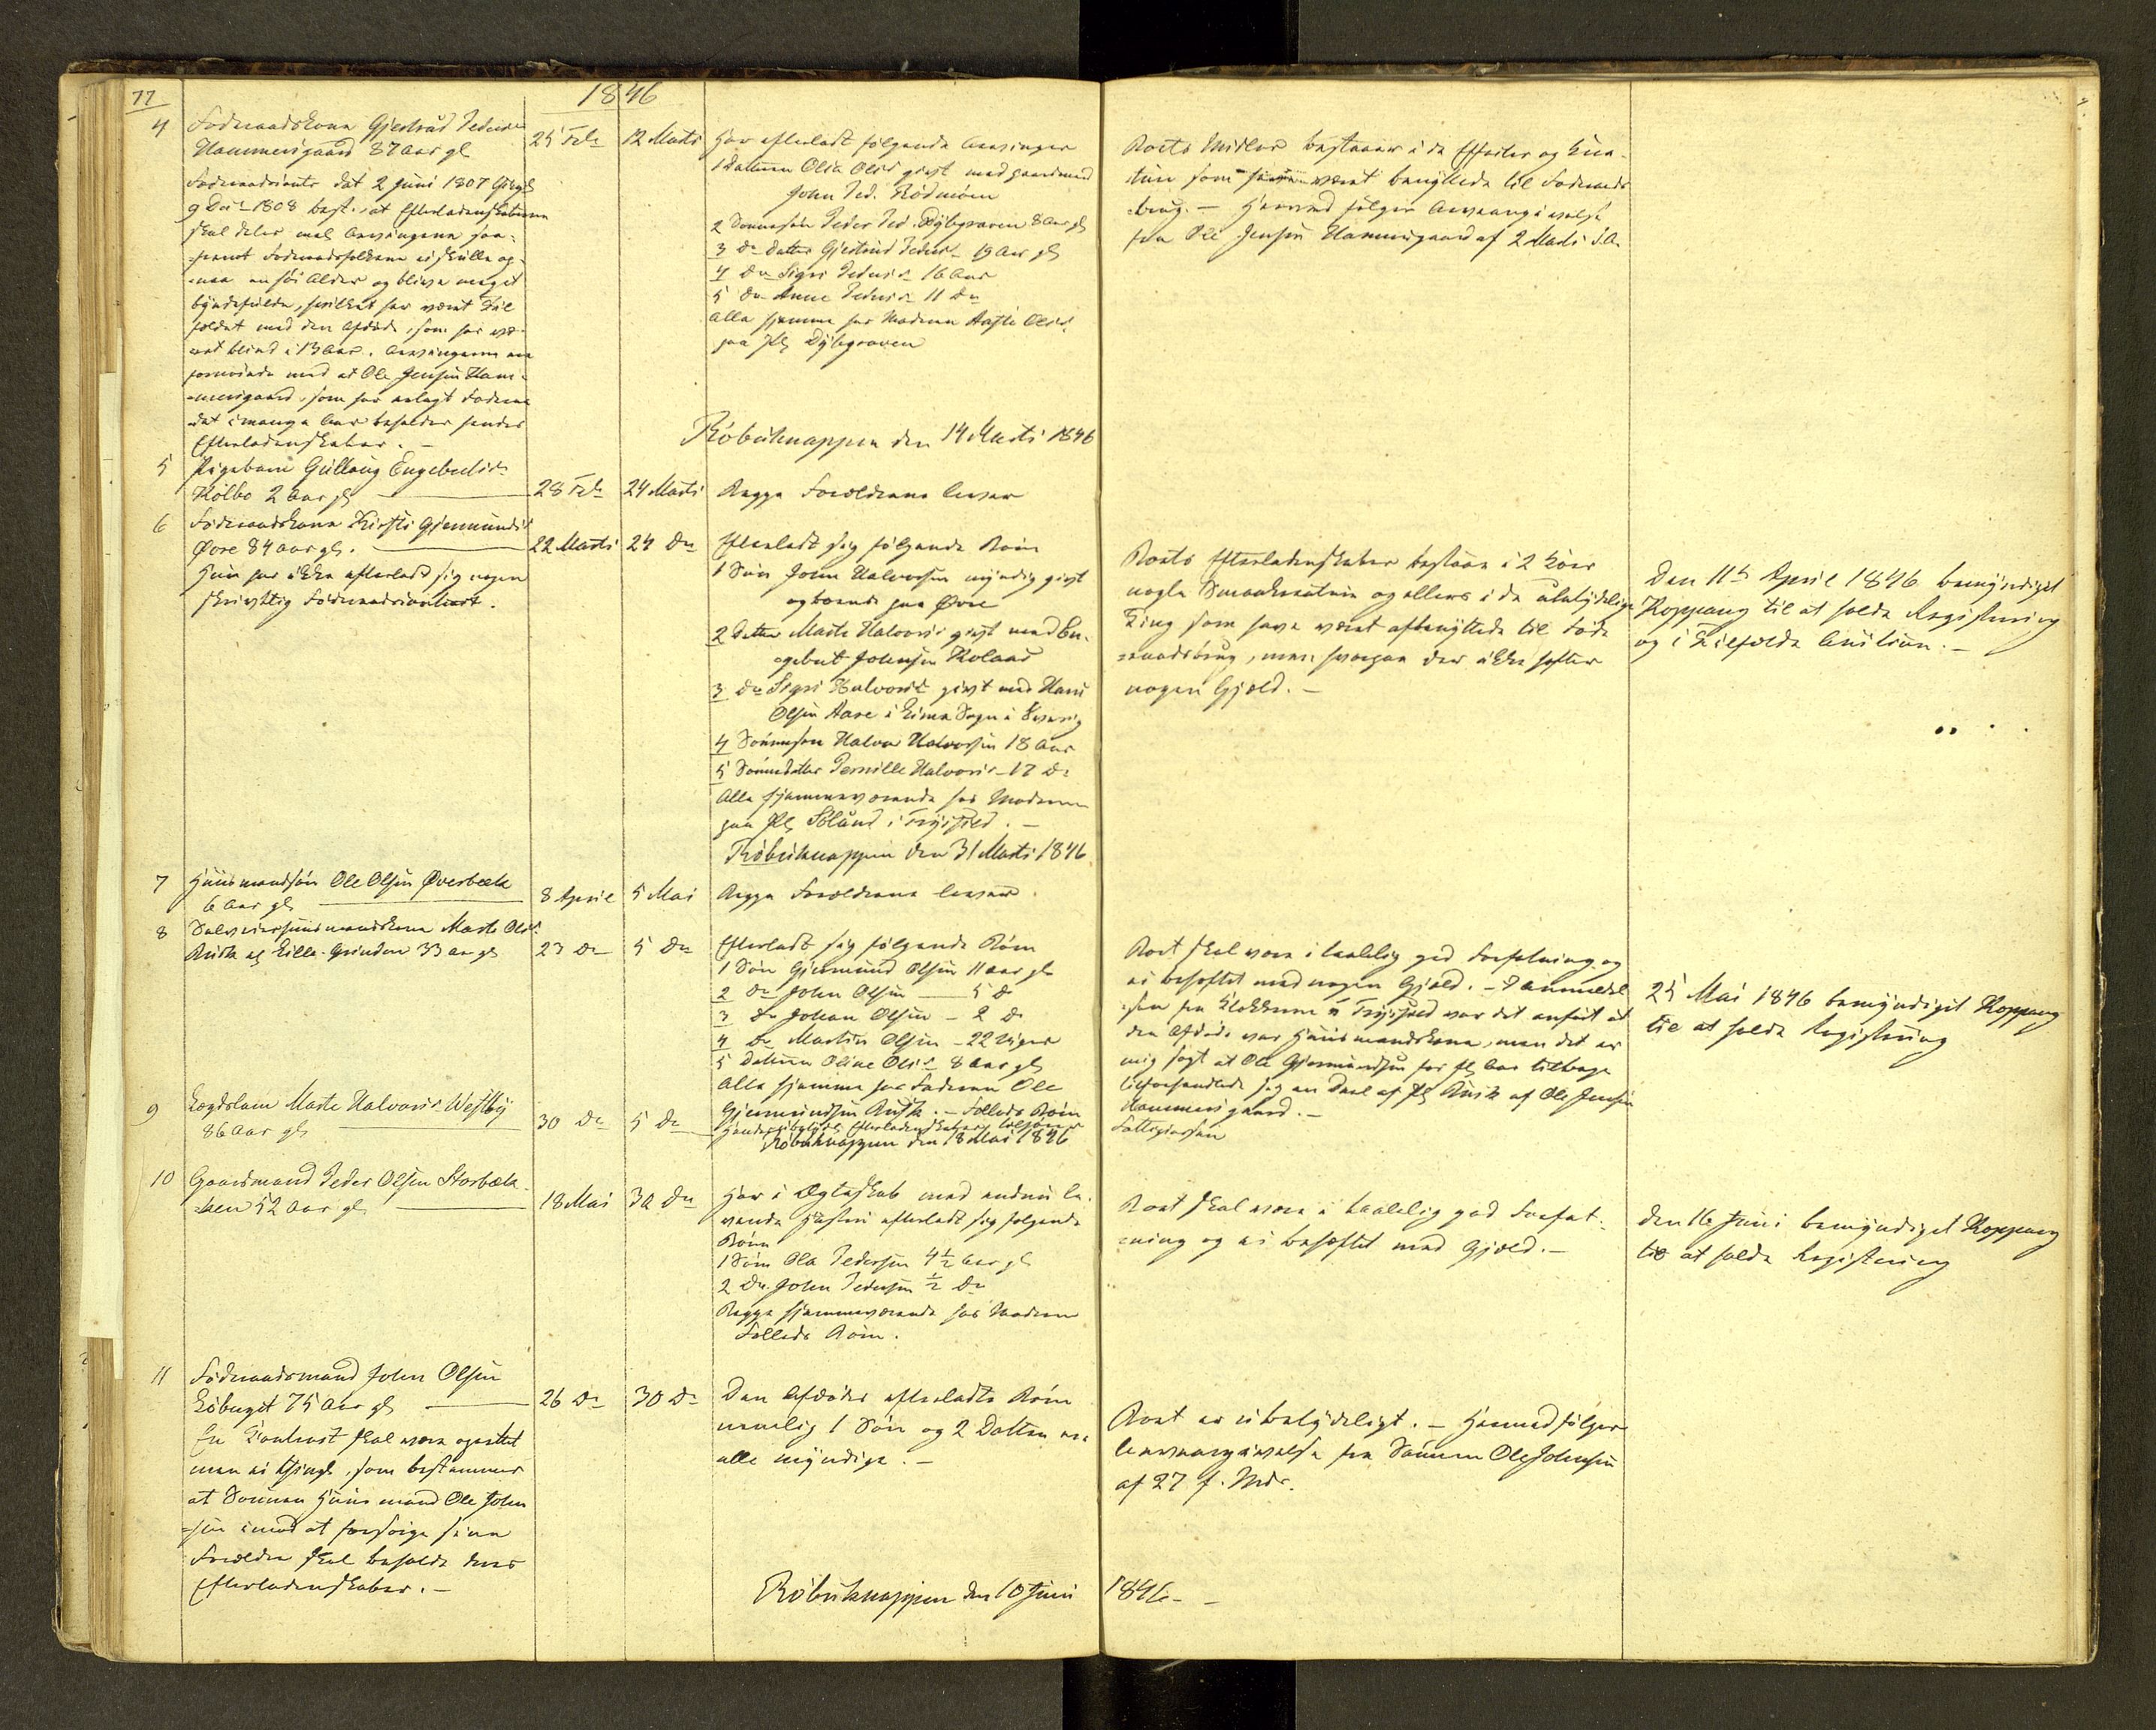 77
1846
4
Föderaadskone Gjertrud Peders
Hammersgaard 87 Aar gl
Föderaadscontr dat 2 Juni 1807 thingl
9 Dec 1808 best. at Efterladenskaberne
skal deles mel Arvingerne saa-
fremt Föderaadsfolkene ei skulle op-
naa en höi Alder og blive meget
byrdefulde, hvilket har været Til-
fældet med den Afdöde, som har væ-
ret blind i 13 Aar. Arvingerne ere
fornöiede med at Ole Jensen Ham-
mersgaard, som har udlagt Födera-
det i mange Aar beholder hendes
Efterladenskaber. -
25 Febr
12 Marts
Har efterladt følgende Arvinger
1 Datteren Olia Olsd givt med gaardmand
John Ped. Rödmoen
2 Sönnesön Peder Ped. Dybgraven 8 Aar gl
3 Do Datter Gjertrud Pedersd 19 Aar gl
4 Do Sigri Pedersd 16 Aar
5 Do Anne Pedersd 11 Do
Alle hjemme hos Moderen Aaste Olsd
paa Pl Dybgraven
Boets Midler bestaaer i de Effecter og Krea-
ture som have været benyttede til Föderaads
brug. - Hermed følger Arveangivelse
fra Ole Jensen Hammersgaard af 2 Marts d.A.
Röbuknappen den 14 Marts 1846
5
Pigebarn Gulloug Engebretsd
Kölbo 2 Aar gl
28 Febr
24 Marts
Begge Forældrene lever
6
Föderaadskone Kirsti Gjermunds
Øvre 84 Aar gl.
Hun har ikke efterladt sig nogen
skrivtlig Föderaadscontract.
22 Marts
24 Do
Efterladt sig følgende Börn
1 Sön John Halvorsen myndig givt
og boende paa Øvre
2 Datter Marte Halvorsd givt med En-
gebret Johnsen Kolaas
3 Do Sigri Halvorsd givt med Hans
Olsen Aase i Lima Sogn i Sverig
4 Sönnesön Halvor Halvorsen 18 Aar
5 Sönnedatter Pernille Halvorsd 17 Do
Alle hjemmeværende hos Moderen
paa Pl Sölund i Trysild. -
Röbuknappen den 31 Marts 1846
Boets Efterladenskaber bestaae i 2 Köer
nogle Smaakreature og ellers i de ubetydelige
Ting som have været afbenyttede til Föde
raadsbrug, men hvorpaa der ikke hefter
nogen Gjæld. -
Den 11te April 1846 bemyndiget
Koppang til at holde Registrering
og i Tilfælde Auction. -
7
Huusmandsön Ole Olsen Øverbæk
6 Aar gl
8 April
5 Mai
Begge Forældrene lever
8
Selveierhuusmandskone Marte Olsd
Rusk af Lille-Grinden 33 Aar gl
23 Do
5 Do
Efterladt sig følgende Börn
1 Sön Gjermund Olsen 11 Aar gl
2 Do John Olsen 5 D
3 Do Johan Olsen - 2 D
4 Do Martin Olsen - 22 Uger
5 Datteren Oline Olsd 8 Aar gl
Alle hjemme hos Faderen Ole
Gjermundsen Rusk. - Fælleds Börn
Boet skal være i taalelig god Forfatning og
ei behæftet med nogen Gjæld. - I Anmeldel-
sen fra Klokkeren i Trysild var det anfört at
den Afdöde var Huusmandskone, men det er
mig sagt at Ole Gjermundsen for fl Aar tilbage
tilforhandlede sig en Deel af Pl Rusk af Ole Jensen
Hammersgaard. -
25 Mai 1846 bemyndiget Koppang
til at holde Registrering
9
Lægdslem Marte Halvorsd Westby
86 Aar gl
30 Do
5 Do
Hendes ubetydel. Efterladenskaber tilhører
Fattigkassen
Röbuknappen den 18 Mai 1846
10
Gaardmand Peder Olsen Storbæk-
ken 52 Aar gl
18 Mai
30 Do
Har i Ægteskab med endnu le-
vende Hustru efterladt sig følgende
Börn
1 Sön Ole Pedersen 4 1/2 Aar gl
2 Do John Pedersen 1/2 Do
Begge hjemmeværende hos Moderen
Fælleds Börn.
Boet skal være i taalelig god Forfat-
ning og ei behæftet med Gjæld. -
den 16 Juni bemyndiget Koppang
til at holde Registrering
11
Föderaadsmand John Olsen
Löberget 75 Aar gl
En Contract skal være oprettet
men ei thingl, som bestemmer
at Sönnen Huusmand Ole John
sen imod at forsörge sine
Forældre skal beholde deres
Efterladenskaber. -
26 Do
30 Do
Den Afdödes efterladte Börn
nemelig 1 Sön og 2 Döttre ere
alle myndige. -
Boet er ubetydeligt. - Hermed følger
Arveangivelse fra Sönnen Ole Johnsen
af 27 f. Mdr.
Röbuknappen den 10 Juni 1846 -